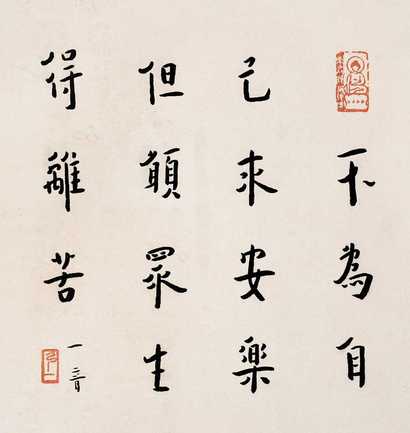 不為自
己求安樂
但願眾生
得離苦
一音